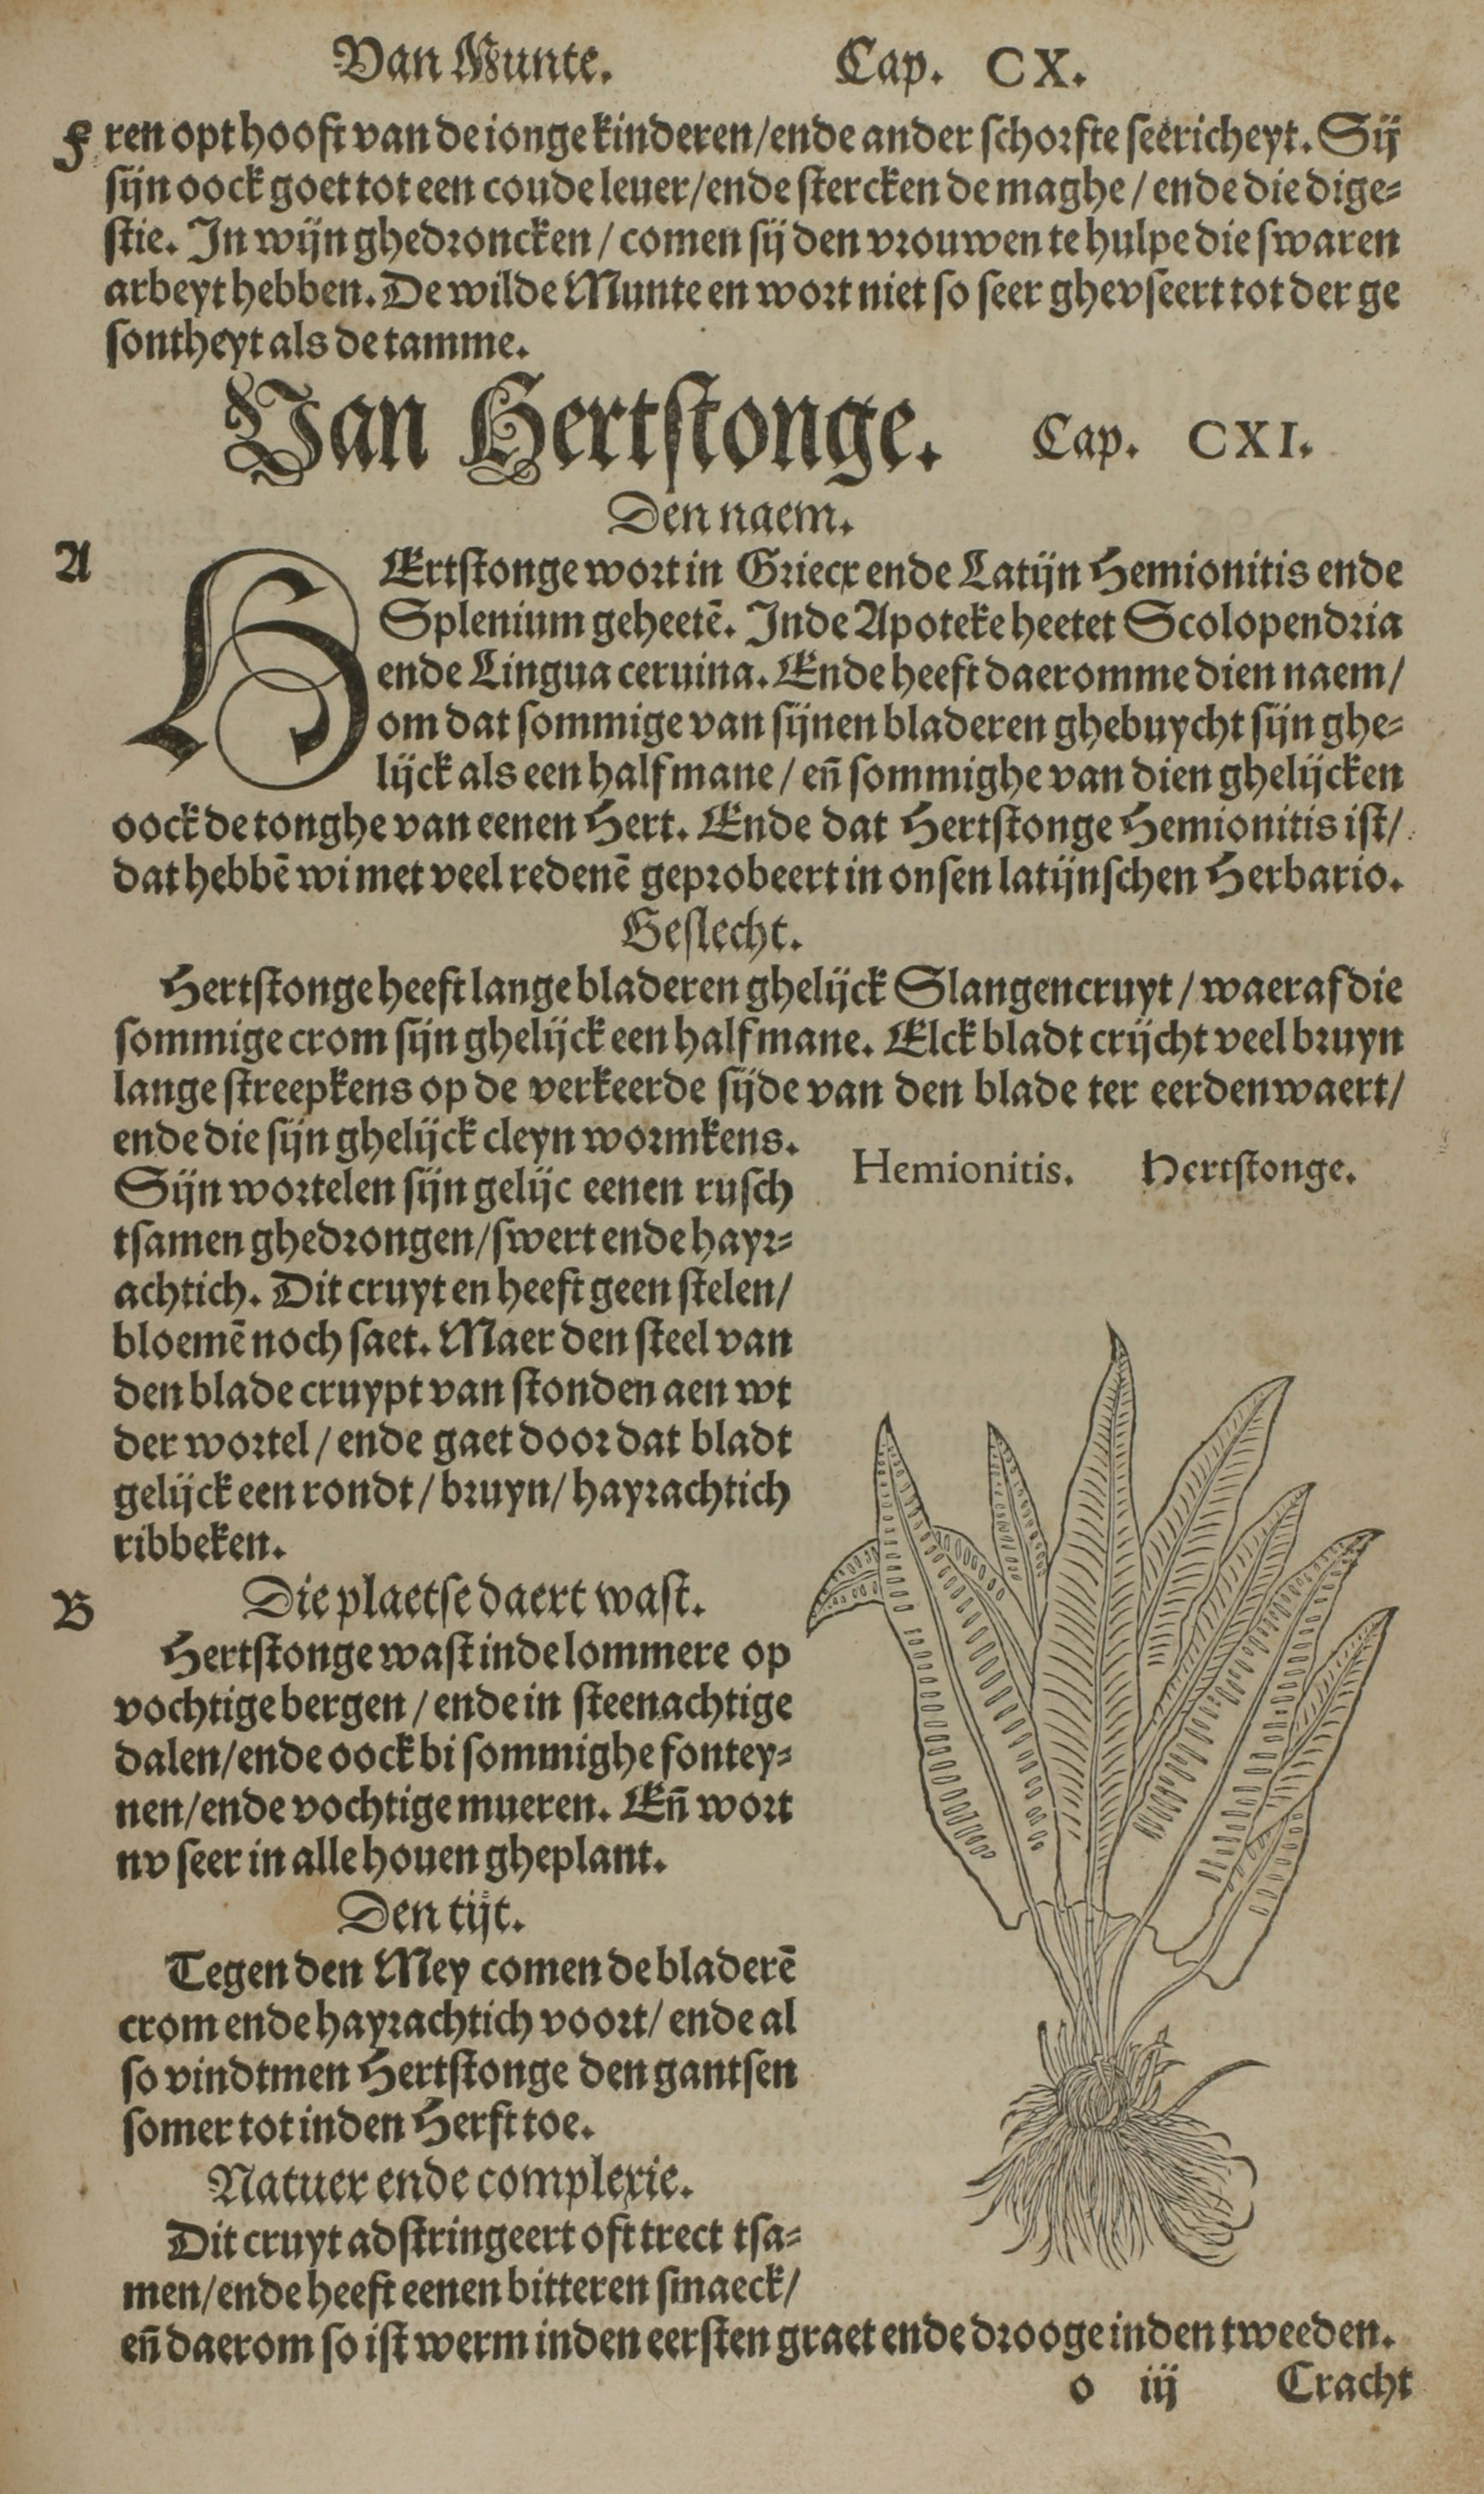 Van Munte. Cap. CX.
F ren opt hooft van de ionge kinderen/ende ander schorfte seericheyt. Sij
sijn oock goet tot een coude leuer/ende stercken de maghe/ ende die dige-
stie. In wijn ghedroncken/ comen sij den vrouwen te hulpe die swaren
arbeyt hebben. De wilde Munte en wort niet so seer ghevseert tot der ge
sontheyt als de tamme.
Van Hertstonge. Cap. CXI.
Den naem.
A
HErtstonge wort in Griecx ende Latijn Hemionitis ende
Splenium geheetē. Inde Apoteke heetet Scolopendria
ende Lingua ceruina. Ende heeft daeromme dien naem/
om dat sommige van sijnen bladeren ghebuycht sijn ghe-
lijck als een half mane/ eñ sommighe van dien ghelijcken
oock de tonghe van eenen Hert. Ende dat Hertstonge Hemionitis ist/
dat hebbē wi met veel redenē geprobeert in onsen latijnschen Herbario.
Geslecht.
Hertstonge heeft lange bladeren ghelijck Slangencruyt/ waeraf die
sommige crom sijn ghelijck een half mane. Elck bladt crijcht veel bruyn
lange streepkens op de verkeerde sijde van den blade ter eerdenwaert/
ende die sijn ghelijck cleyn wormkens.
Sijn wortelen sijn gelijc eenen rusch
tsamen ghedrongen/swert ende hayr-
achtich. Dit cruyt en heeft geen stelen/
bloemē noch saet. Maer den steel van
den blade cruypt van stonden aen wt
der wortel/ ende gaet door dat bladt
gelijck een rondt/ bruyn/ hayrachtich
ribbeken.
Hemionitis. Hertstonge.
B
Die plaetse daert wast.
Hertstonge wast inde lommere op
vochtige bergen/ ende in steenachtige
dalen/ende oock bi sommighe fontey-
nen/ende vochtige mueren. Eñ wort
nv seer in alle houen gheplant.
Den tijt.
Tegen den Mey comen de bladerē
crom ende hayrachtich voort/ ende al
so vindtmen Hertstonge den gantsen
somer tot inden Herfst toe.
Natuer ende complexie.
Dit cruyt adstringeert oft trect tsa-
men/ende heeft eenen bitteren smaeck/
eñ daerom so ist werm inden eersten graet ende drooge inden tweeden.
o iij Cracht